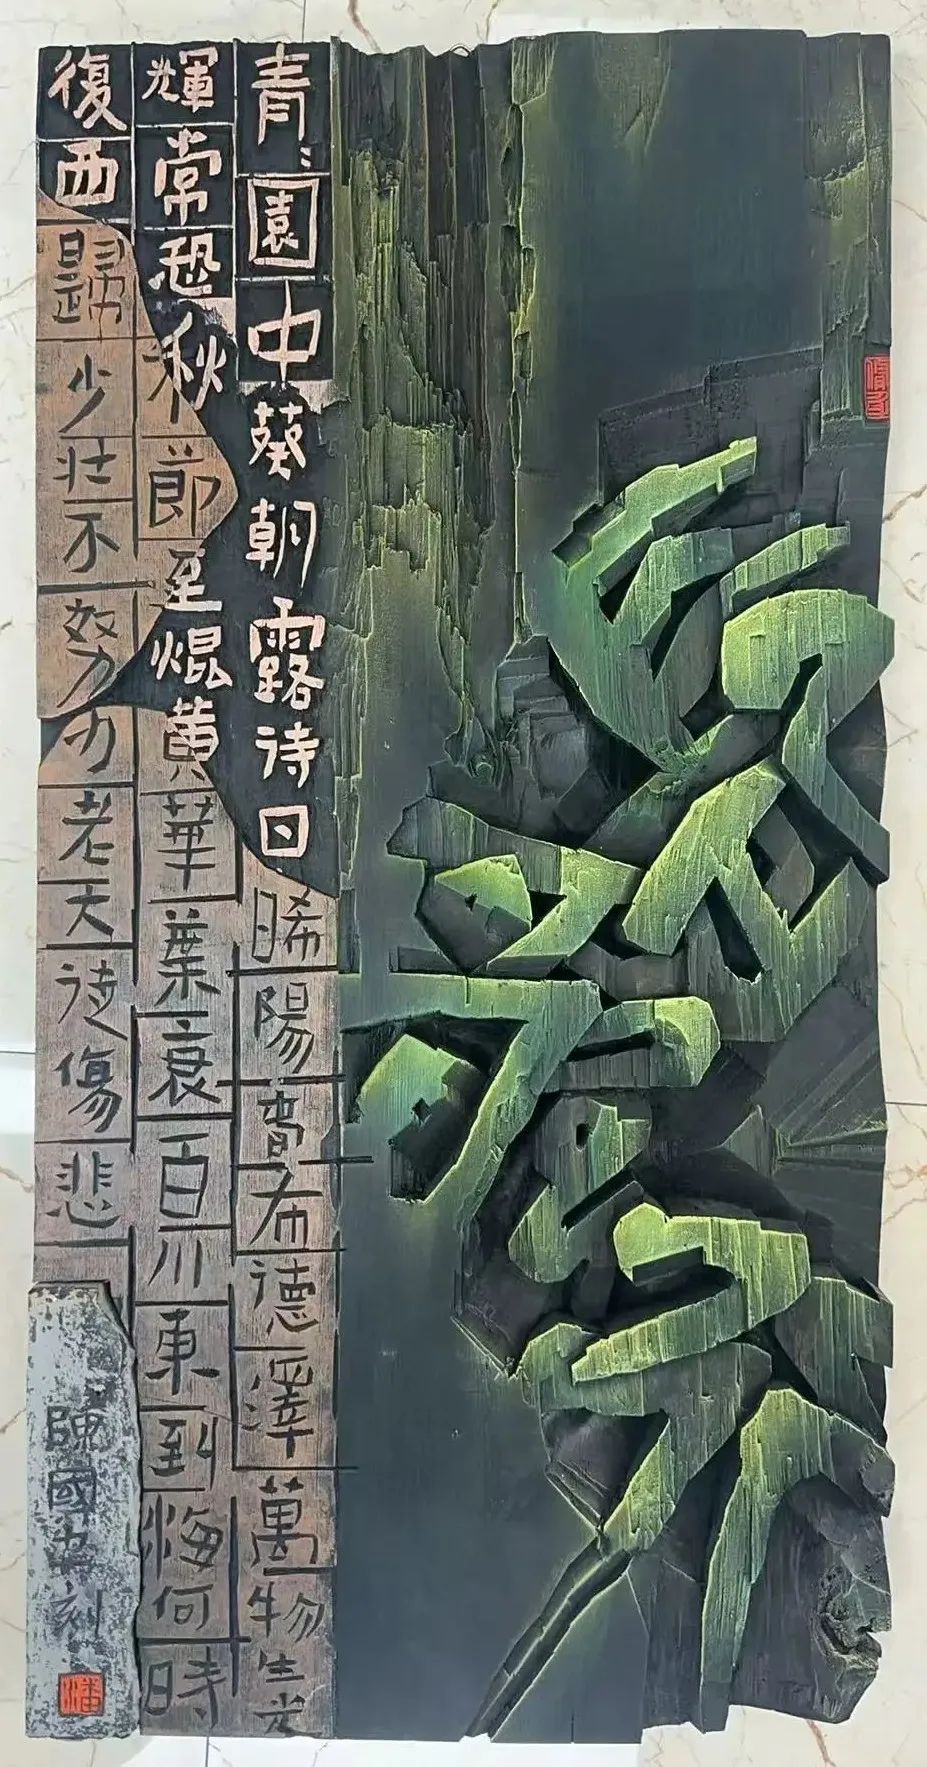 青〻園中葵朝露待日晞陽春布德澤萬物生光
輝常恐秋節至焜黄華葉衰百川東到海何時
復西歸少壯不努力老大徒傷悲
陳國刻